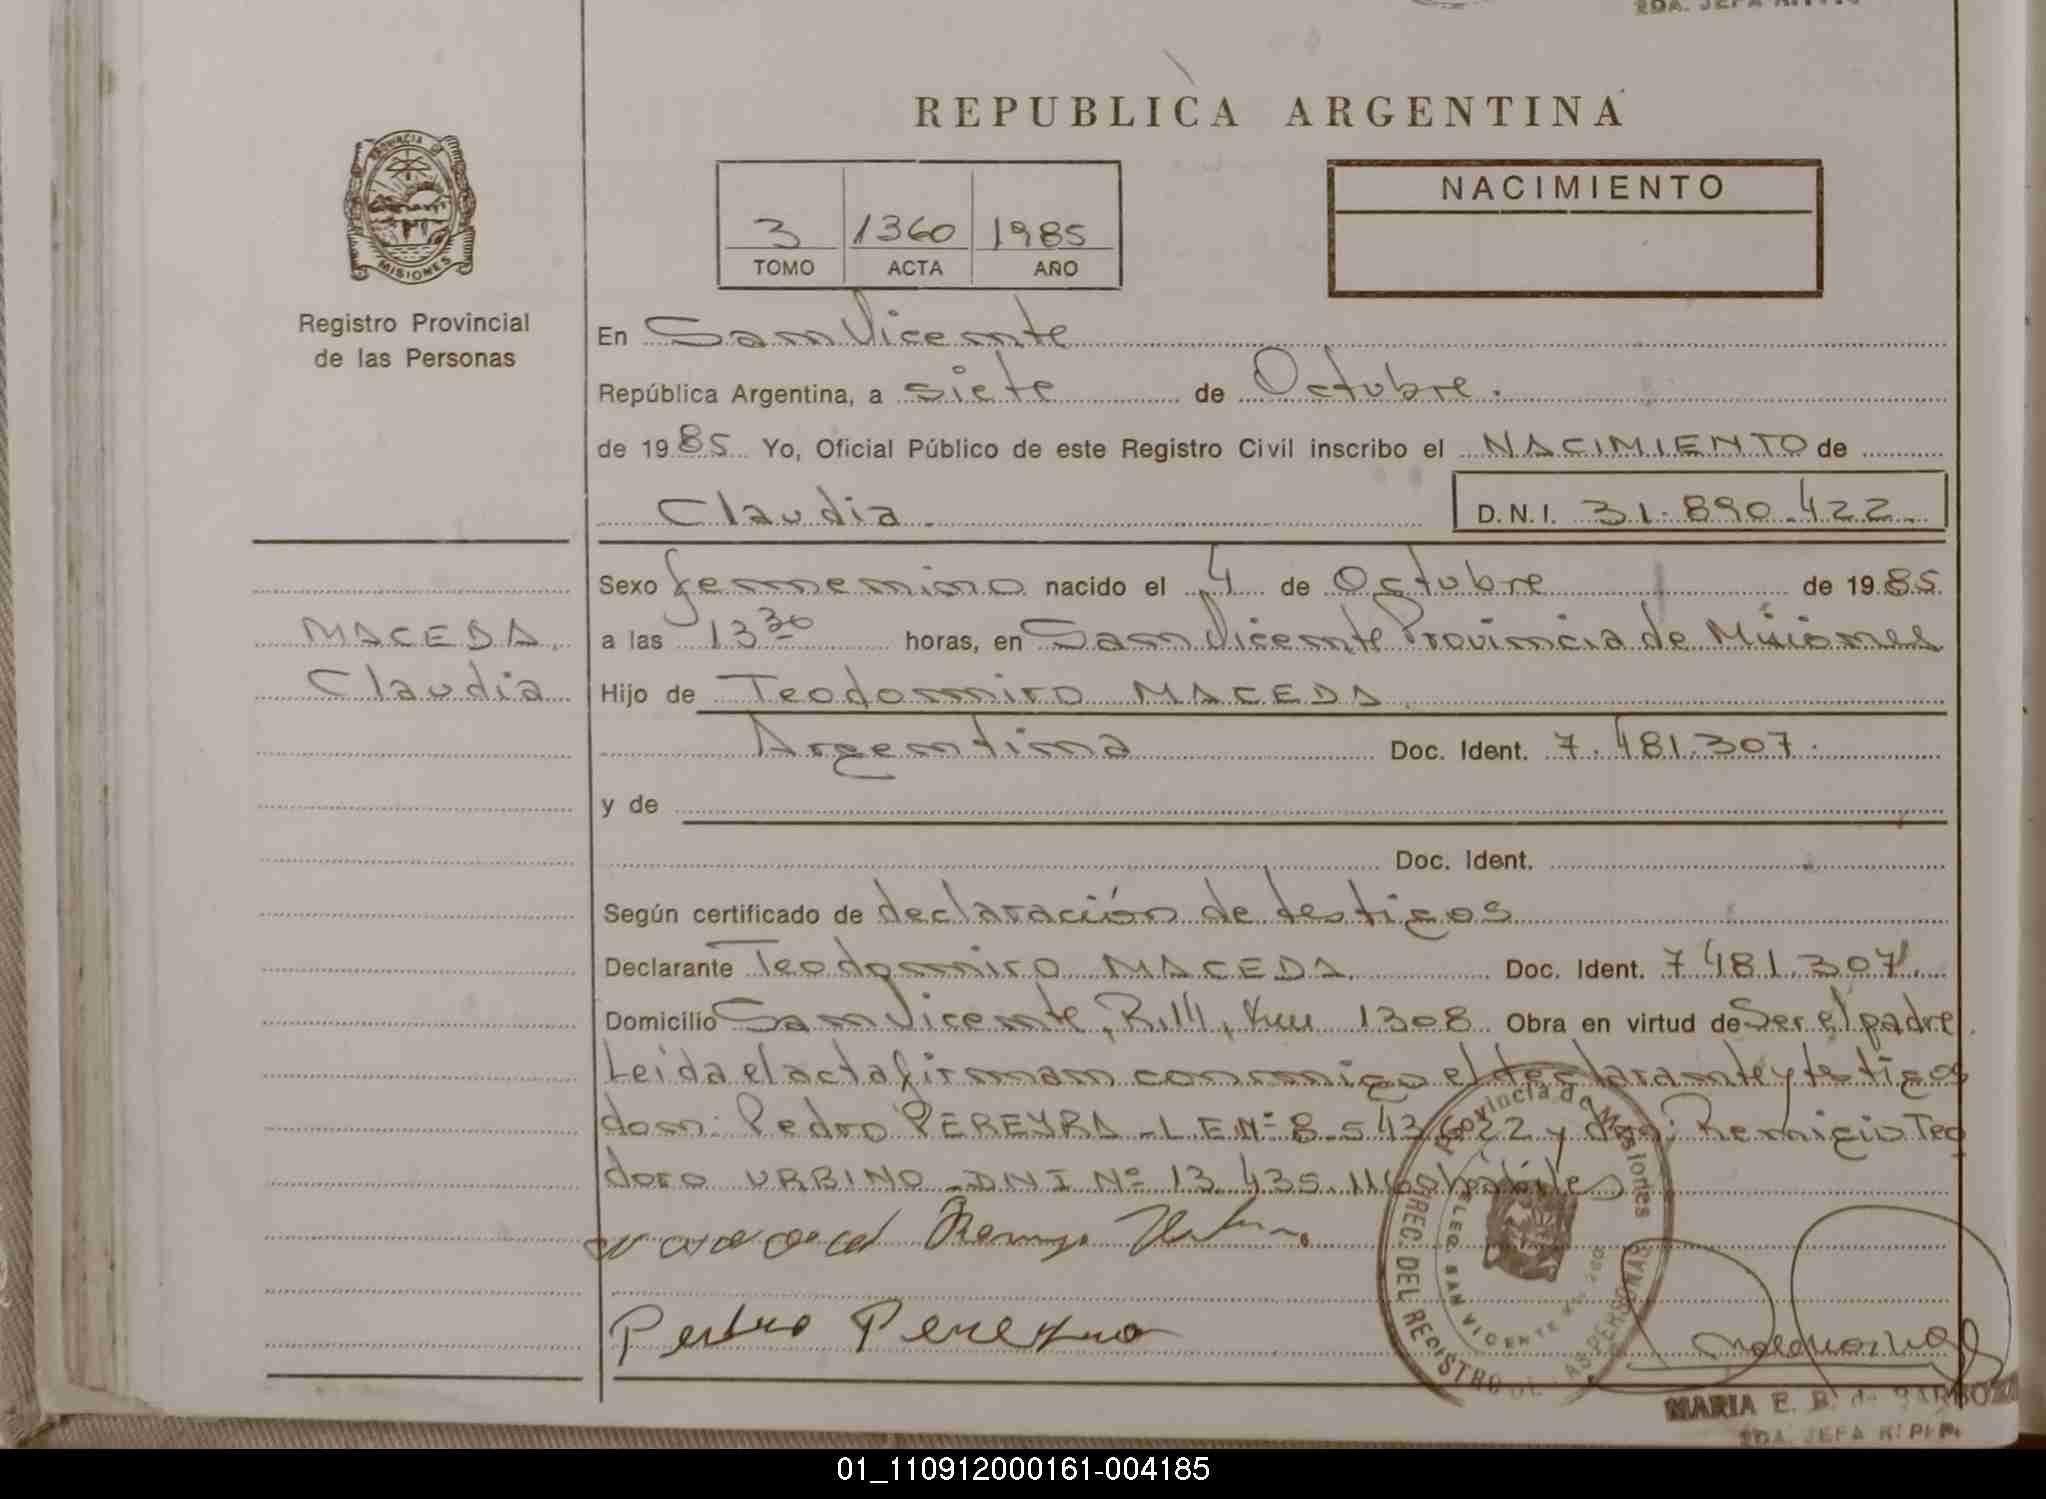 REPUBLICA ARGENTINA
PROVINCIA DE
MISIONES
Registro Provincial
de las Personas
3 1360 1985
TOMO ACTA AÑO
NACIMIENTO
En San Vicente
República Argentina, a siete de Octubre.
de 1985 Yo, Oficial Público de este Registro Civil inscribo el NACIMIENTO de
Claudia. D.N.I. 31.890.422
Sexo femenino nacido el 4 de Octubre de 1985
MACEDA.
Claudia
a las 13 30 horas, en San Vicente Provincia de Misiones
Hijo de Teodomiro MACEDA.
Argentina Doc. Ident. 7.481.307.
y de
Doc. Ident.
Según certificado de declaración de testigos
Declarante Teodomiro MACEDA. Doc. Ident. 7.481.307.
Domicilio San Vicente, R.14, Km 1308 Obra en virtud de Ser el padre.
Leida el acta firman conmigo el declarante y testigos
don: Pedro PEREYRA - L.E.Nº 8.543.622 y don: Remigio Teo
doro URBINO - DNI Nº 13.435.116 hábiles
Pedro Pereyra
Provincia de Misiones
DIREC. DEL REGISTRO DE LAS PERSONAS
DELEG. SAN VICENTE
MARIA E. B. de BARBOZA
2DA. JEFA R.P.P.
01_110912000161-004185